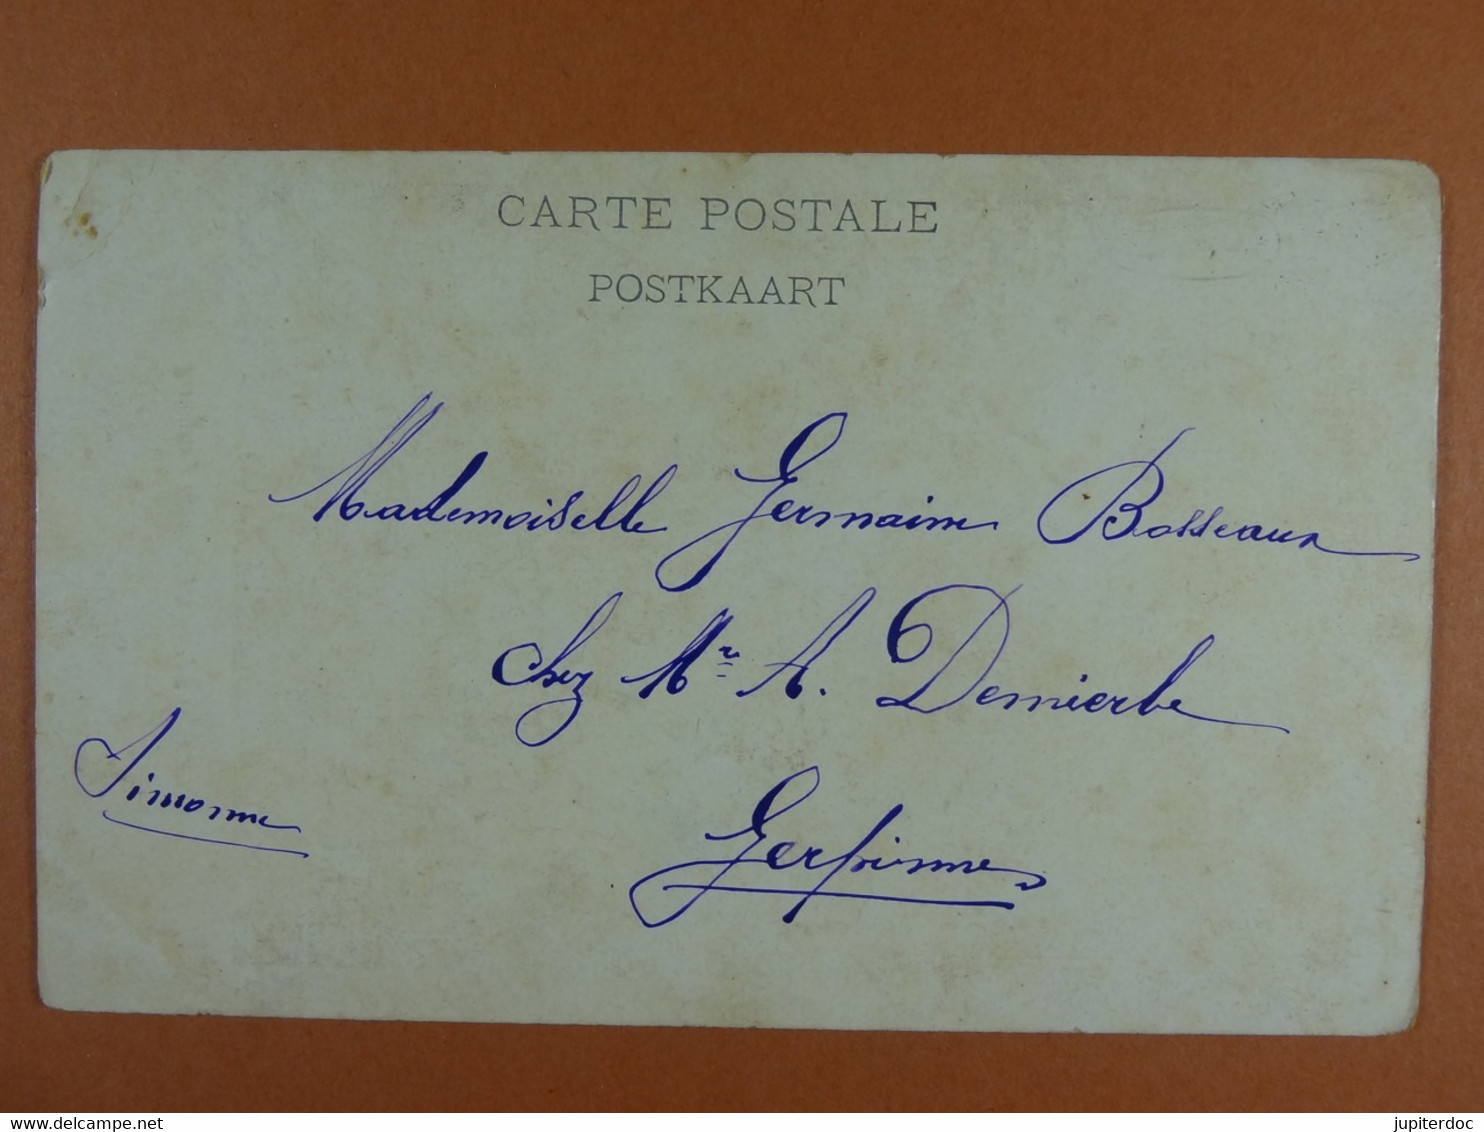 CARTE POSTALE
POSTKAART
Mademoiselle Germaine Bosseaux
chez Mr A. Demierbe
Simonne
Gerpinnes
delcampe.net
jupiterdoc